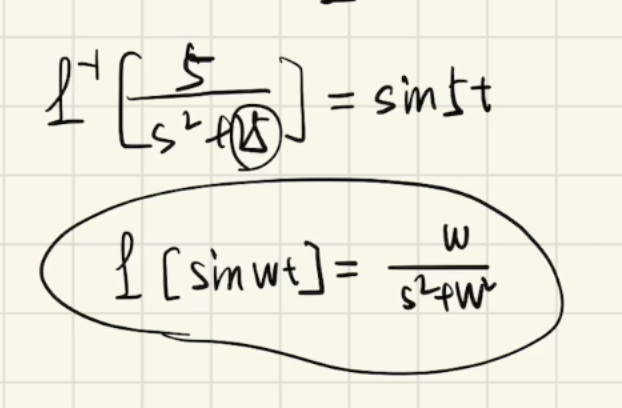 ℒ⁻¹[5/(s²+25)] = sin5t
ℒ[sinwt] = w/(s²+w²)